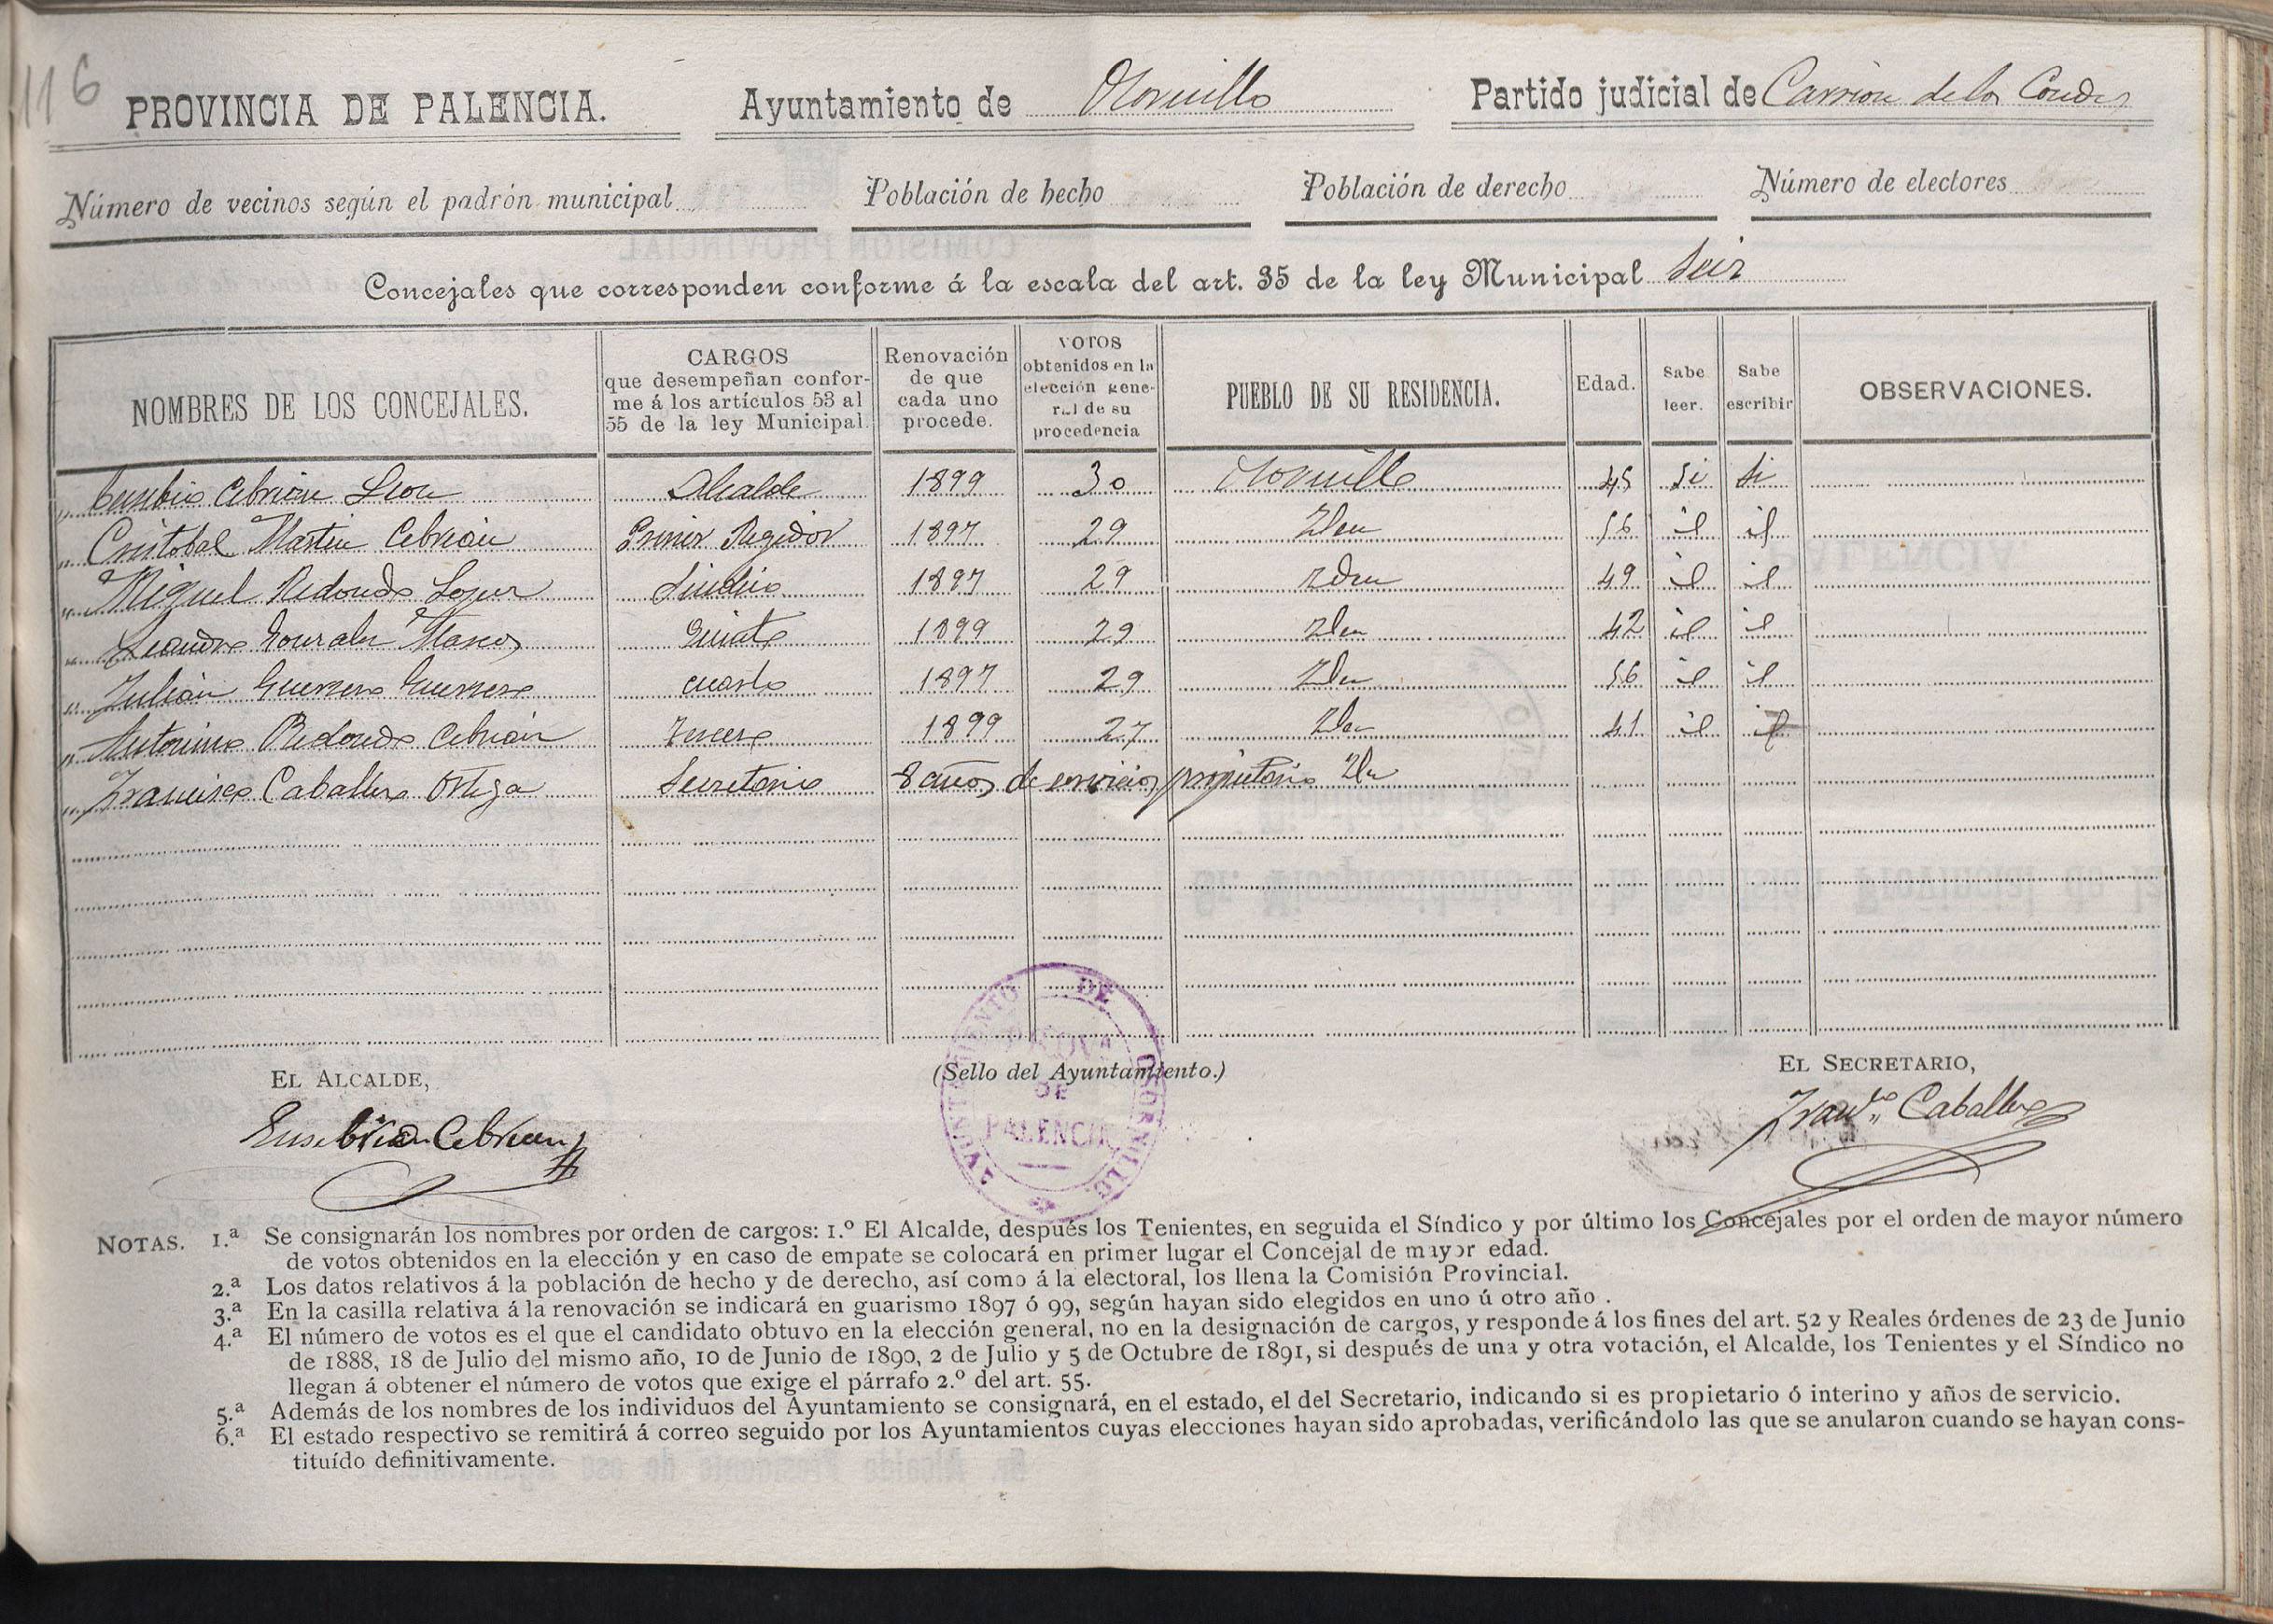 116
PROVINCIA DE PALENCIA. Ayuntamiento de Osornillo Partido judicial de Carrion de los Condes
Número de vecinos según el padrón municipal Población de hecho Población de derecho Número de electores
Concejales que corresponden conforme á la escala del art. 35 de la ley Municipal Seis
NOMBRES DE LOS CONCEJALES. CARGOS que desempeñan confor-me á los artículos 53 al 55 de la ley Municipal. Renovación de que cada uno procede. VOTOS obtenidos en la elección gene-ral de su procedencia PUEBLO DE SU RESIDENCIA. Edad. Sabe leer. Sabe escribir OBSERVACIONES.
" Eusebio Cebrián Leon Alcalde 1899 30 Osornillo 45 Si Si
" Cristobal Martin Cebrián Primer Regidor 1897 29 Idem 56 id id
" Miguel Redondo Lopez Sindico 1897 29 Idem 49 id id
" Leandro Gonzalez Marcos Quinto 1899 29 Idem 42 id id
" Julián Guerrero Guerrero cuarto 1897 29 Idem 56 id id
" Antonino Redondo Cebrián Tercero 1899 27 Idem 41 id id
" Francisco Caballero Ortega Secretario 8 años de servicios propietario Idm
EL ALCALDE, (Sello del Ayuntamiento.) EL SECRETARIO,
AYUNTAMIENTO DE OSORNILLO
PROVA
DE
PALENCIA
Eusebio Cebrian Fran.co Caballero
NOTAS. 1.ª Se consignarán los nombres por orden de cargos: 1.º El Alcalde, después los Tenientes, en seguida el Síndico y por último los Concejales por el orden de mayor número
de votos obtenidos en la elección y en caso de empate se colocará en primer lugar el Concejal de mayor edad.
2.ª Los datos relativos á la población de hecho y de derecho, así como á la electoral, los llena la Comisión Provincial.
3.ª En la casilla relativa á la renovación se indicará en guarismo 1897 ó 99, según hayan sido elegidos en uno ú otro año .
4.ª El número de votos es el que el candidato obtuvo en la elección general, no en la designación de cargos, y responde á los fines del art. 52 y Reales órdenes de 23 de Junio
de 1888, 18 de Julio del mismo año, 10 de Junio de 1890, 2 de Julio y 5 de Octubre de 1891, si después de una y otra votación, el Alcalde, los Tenientes y el Síndico no
llegan á obtener el número de votos que exige el párrafo 2.º del art. 55.
5.ª Además de los nombres de los individuos del Ayuntamiento se consignará, en el estado, el del Secretario, indicando si es propietario ó interino y años de servicio.
6.ª El estado respectivo se remitirá á correo seguido por los Ayuntamientos cuyas elecciones hayan sido aprobadas, verificándolo las que se anularon cuando se hayan cons-
tituído definitivamente.